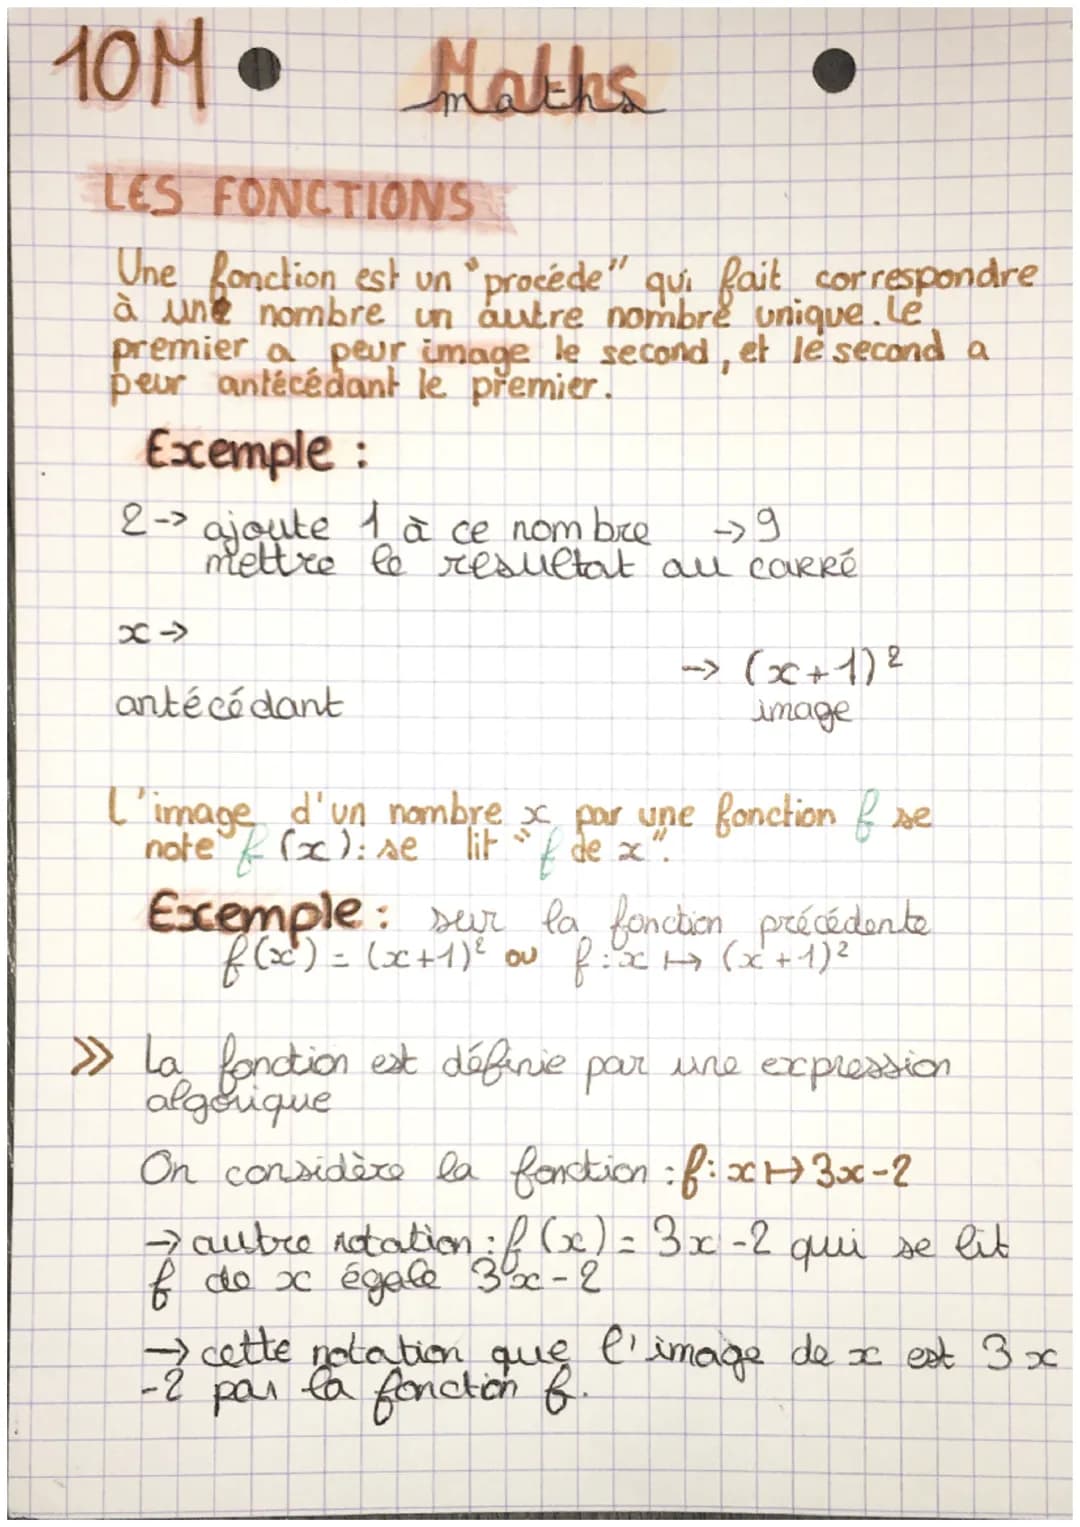 10M Maths
maths
LES FONCTIONS
Une fonction est un "procéde" qui fait correspondre
à une nombre un autre nombre unique. Le
premier a pour image le second, et le second a
pour antécédant le premier.
Exemple :
2 -> ajoute 1 à ce nombre -> 9
mettre le resultat au carré
x ->
-> (x+1)²
antécédant image
L'image d'un nombre x par une fonction f se
note f (x): se lit "f de x".
Exemple : sur la fonction précédente
f(x) = (x+1)² ou f : x ↦ (x+1)²
>> La fonction est définie par une expression
algérique
On considère la fonction : f: x ↦ 3x-2
-> autre notation : f (x) = 3x-2 qui se lit
f de x égale 3x-2
-> cette notation que l'image de x est 3x
-2 par la fonction f.